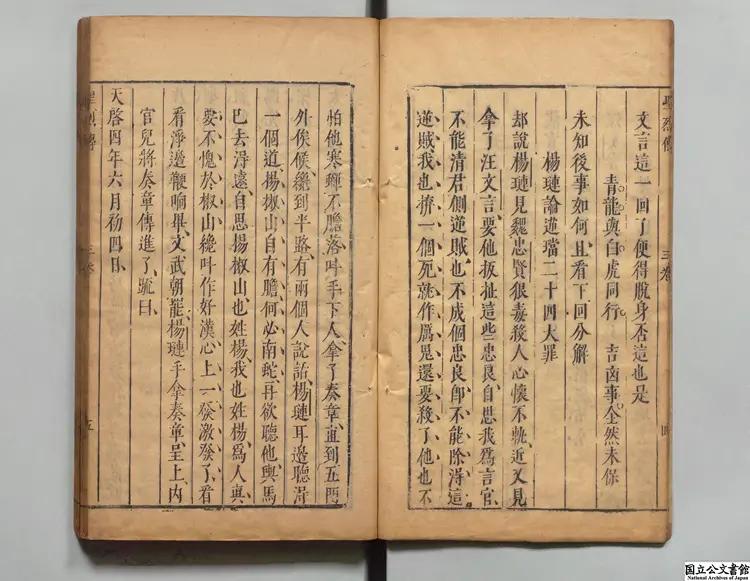 文言這一回了便得脫身否這也是
青龍與白虎同行 吉凶事全然未保
未知後事如何且看下回分解
楊璉論逆璫二十四大罪
却說楊璉見魏忠賢狠毒殺人心懷不軌近又見
拿了汪文言要他扳扯這些忠良自思我爲言官
不能清君側逆賊也不成個忠良郎不能除淂這
逆賊我也挤一個死就作厲鬼還要殺了他也不
三卷
四
怕他寒蟬不膽落呌手下人拿了奏章直到五門
外俟候纔到半路有兩個人說話楊璉耳邊聽淂
一個道楊椒山自有膽何必南蛇再欲聽他輿馬
已去淂遠自思楊椒山也姓楊我也姓楊爲人真
要不愧於椒山纔呌作好漢心上一發激發了看
看淨邊鞭响畢文武朝罷楊璉手拿奏章呈上内
官兒將奏章傳進了疏曰
天啓四年六月初四日
三卷
五
国立公文書館
National Archives of Japan